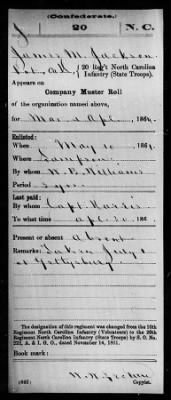 (Confederate.)
J 20 N. C.
James M. Jackson
Pvt, Co. , 20 Reg't North Carolina
Infantry (State Troops).
Appears on
Company Muster Roll
of the organization named above,
for Mar & Apl, 186
Enlisted:
When May 10, 186
Where Sampson
By whom Williams
Period 3 yrs
Last paid:
By whom Capt. Harris
To what time Apl. 30, 186
Present or absent Absent
Remarks: Taken July 1
at Gettysburg
The designation of this regiment was changed from the 10th
Regiment North Carolina Infantry (Volunteers) to the 20th
Regiment North Carolina Infantry (State Troops) by S. O. No.
222, A. & I. G. O., dated November 14, 1861.
Book mark:
(642)
Copyist.